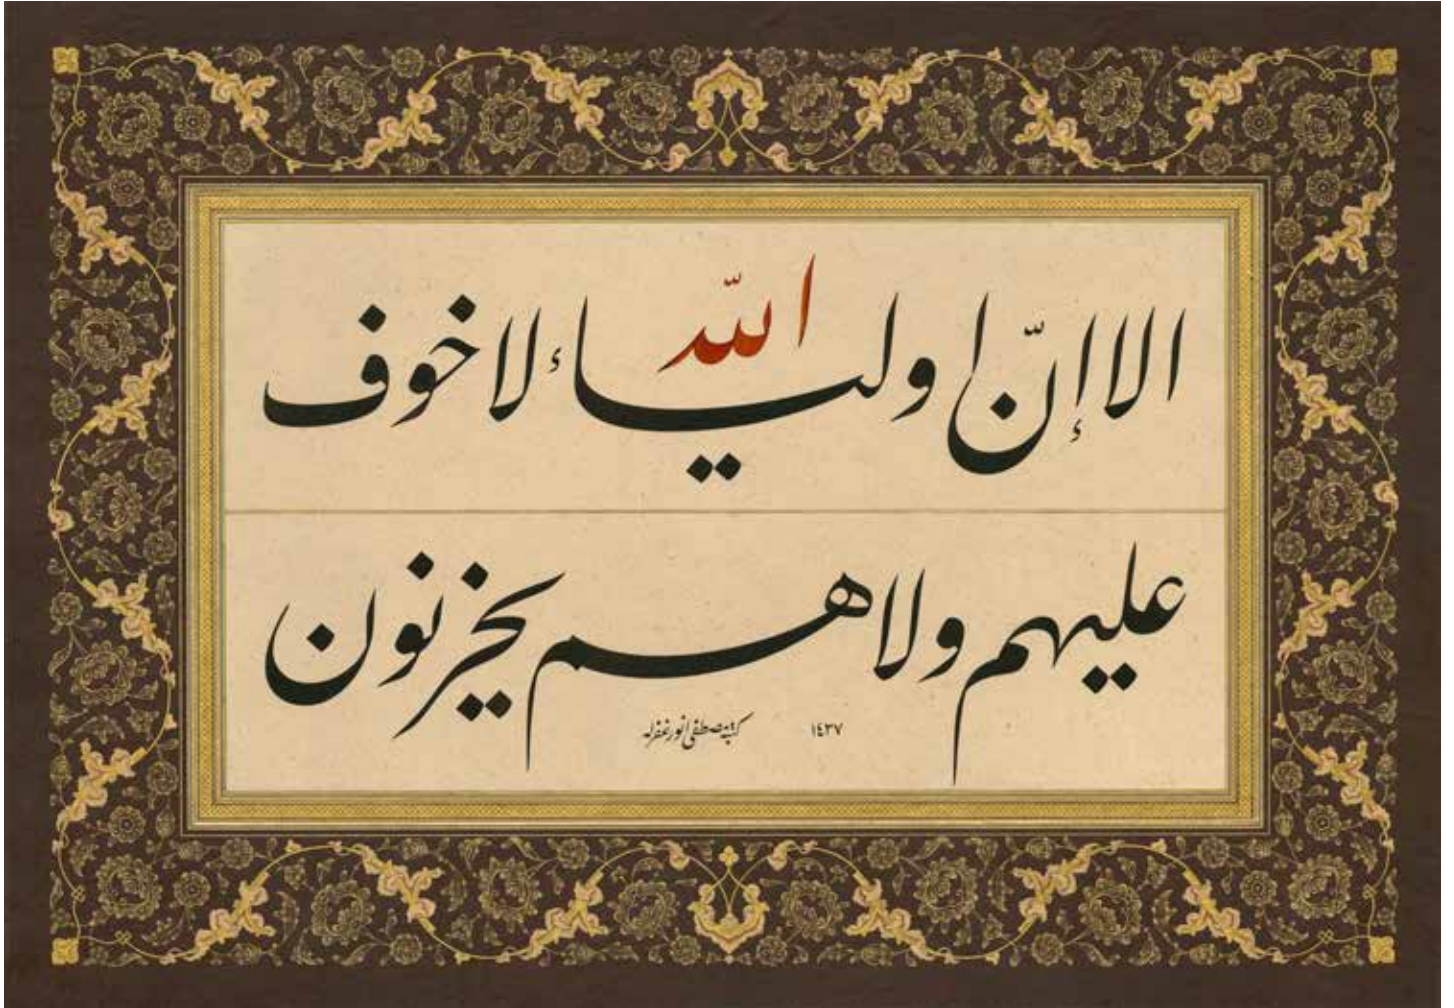 الا إنّ اولياء الله لا خوف
عليهم ولا هم يحزنون
كتبه مصطفى انور غفرله ١٤٣٧